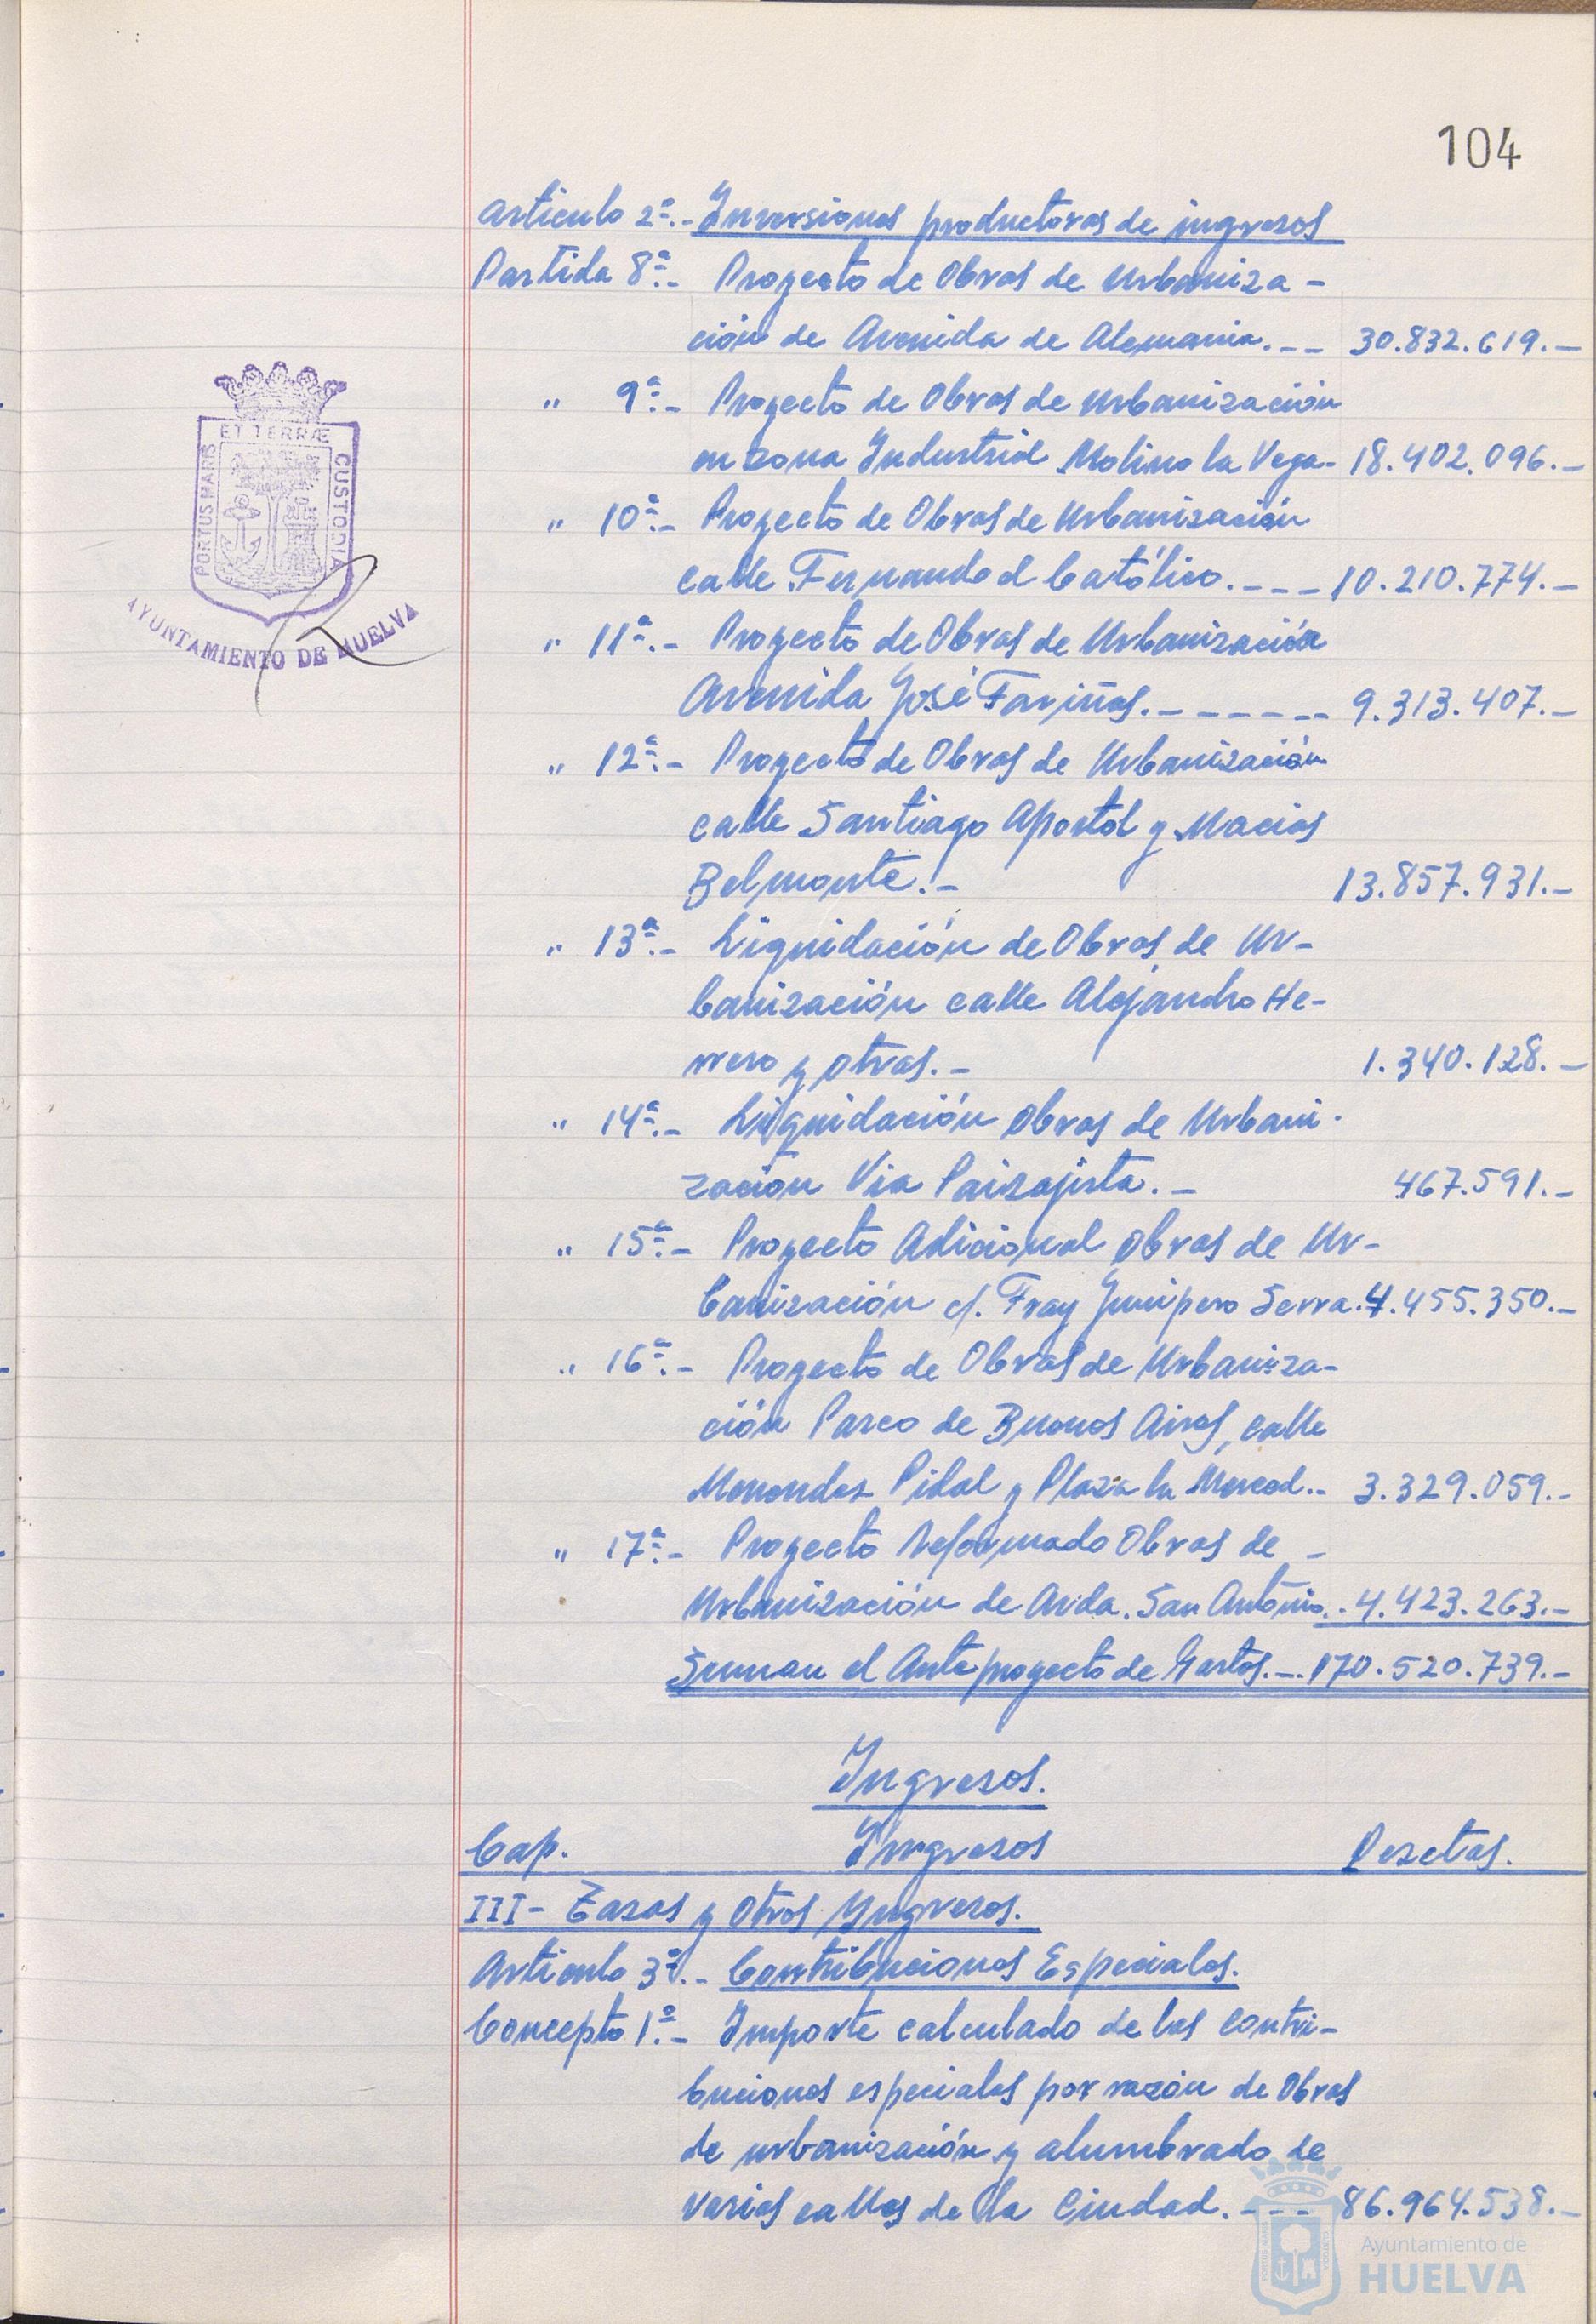 104
Artículo 2º.- Inversiones productoras de ingresos
Partida 8ª.- Proyecto de Obras de Urbaniza-
ción de Avenida de Alemania.-- 30.832.619.-
" 9ª.- Proyecto de Obras de Urbanización
en zona Industrial Molino la Vega- 18.402.096.-
" 10ª.- Proyecto de Obras de Urbanización
calle Fernando el Católico.---- 10.210.774.-
" 11ª.- Proyecto de Obras de Urbanización
Avenida José Fariñas.------- 9.313.407.-
" 12ª.- Proyecto de Obras de Urbanización
calle Santiago Apostol y Macias
Belmonte.- 13.857.931.-
" 13ª.- Liquidación de Obras de Ur-
banización calle Alejandro He-
rrero y otras.- 1.340.128.-
" 14ª.- Liquidación Obras de Urbani-
zación Via Paisajista.- 467.591.-
" 15ª.- Proyecto Adicional Obras de Ur-
banización c/. Fray Junipero Serra. 4.455.350.-
" 16ª.- Proyecto de Obras de Urbaniza-
ción Paseo de Buenos Aires, calle
Menendez Pidal y Plaza la Merced.- 3.329.059.-
" 17ª.- Proyecto Reformado Obras de -
Urbanización de Avda. San Antonio.- 4.423.263.-
Suman el Anteproyecto de Gastos.-- 170.520.739.-
Ingresos.
Cap. Ingresos Pesetas.
III- Tasas y Otros Ingresos.
Artículo 3º.- Contribuciones Especiales.
Concepto 1º.- Importe calculado de las contri-
buciones especiales por razón de Obras
de urbanización y alumbrado de
varias calles de la Ciudad.---- 86.964.538.-
PORTUS MARIS
ET TERRÆ
CUSTODIA
AYUNTAMIENTO DE HUELVA
Ayuntamiento de
HUELVA